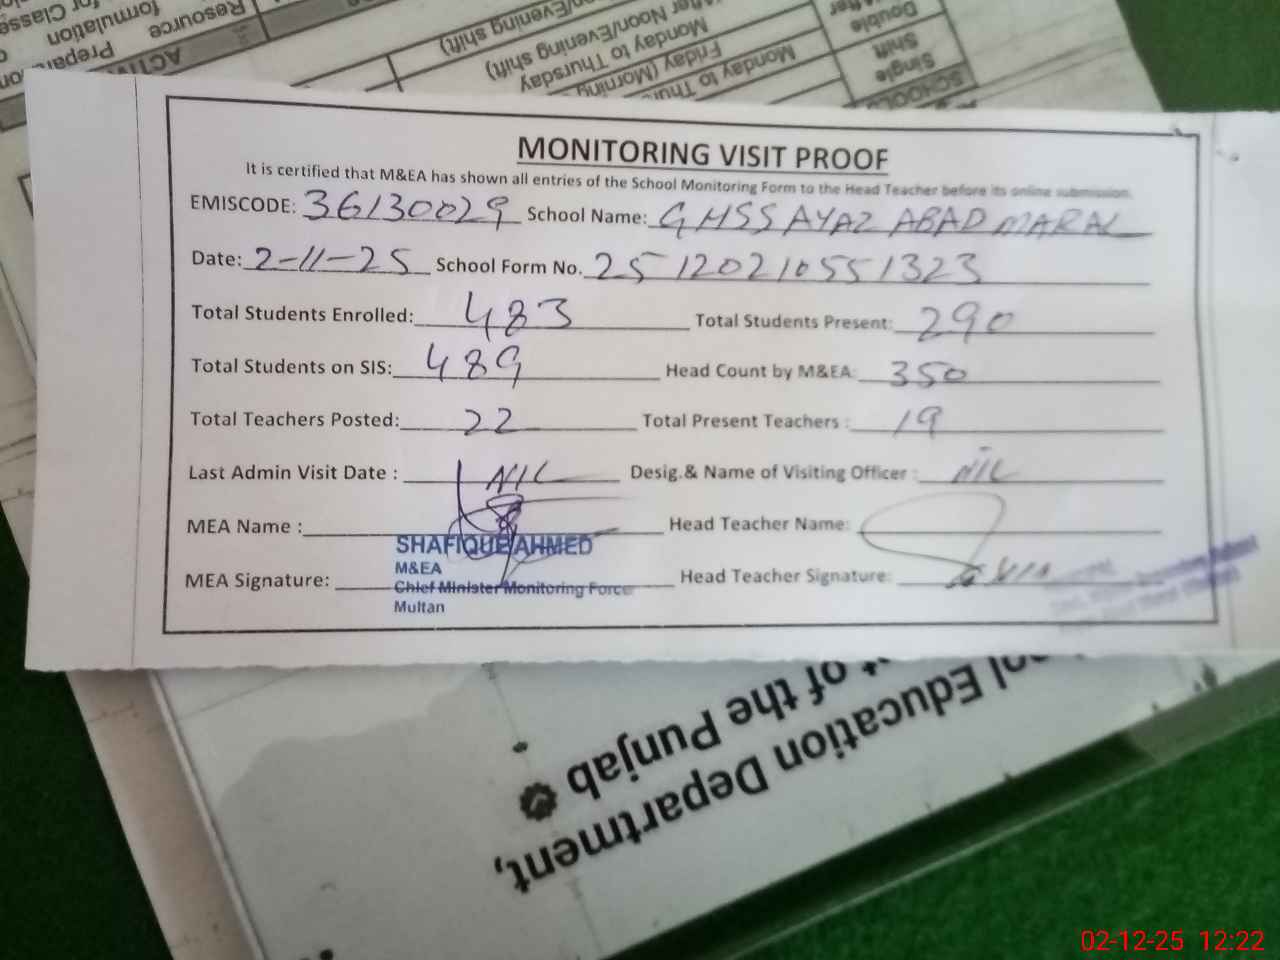 MONITORING VISIT PROOF
It is certified that M&EA has shown all entries of the School Monitoring Form to the Head Teacher before its online submission.
EMISCODE: 36130029 School Name: GHSS AYAZ ABAD MARAL
Date: 2-11-25 School Form No. 2512021055 1323
Total Students Enrolled: 483 Total Students Present: 290
Total Students on SIS: 489 Head Count by M&EA: 350
Total Teachers Posted: 22 Total Present Teachers : 19
Last Admin Visit Date : NIL Desig.& Name of Visiting Officer : NIL
MEA Name : Head Teacher Name:
SHAFIQUE AHMED
M&EA
MEA Signature: Head Teacher Signature:
Chief Minister Monitoring Force
Multan
Resource
formulation
for Classe
ACTIV
Double
Shift
Single
SCHOOLS
Monday to Thursday
Friday (Morning
Monday to Thursday
(After Noon/Evening shift)
Education Department,
of the Punjab
02-12-25 12:22